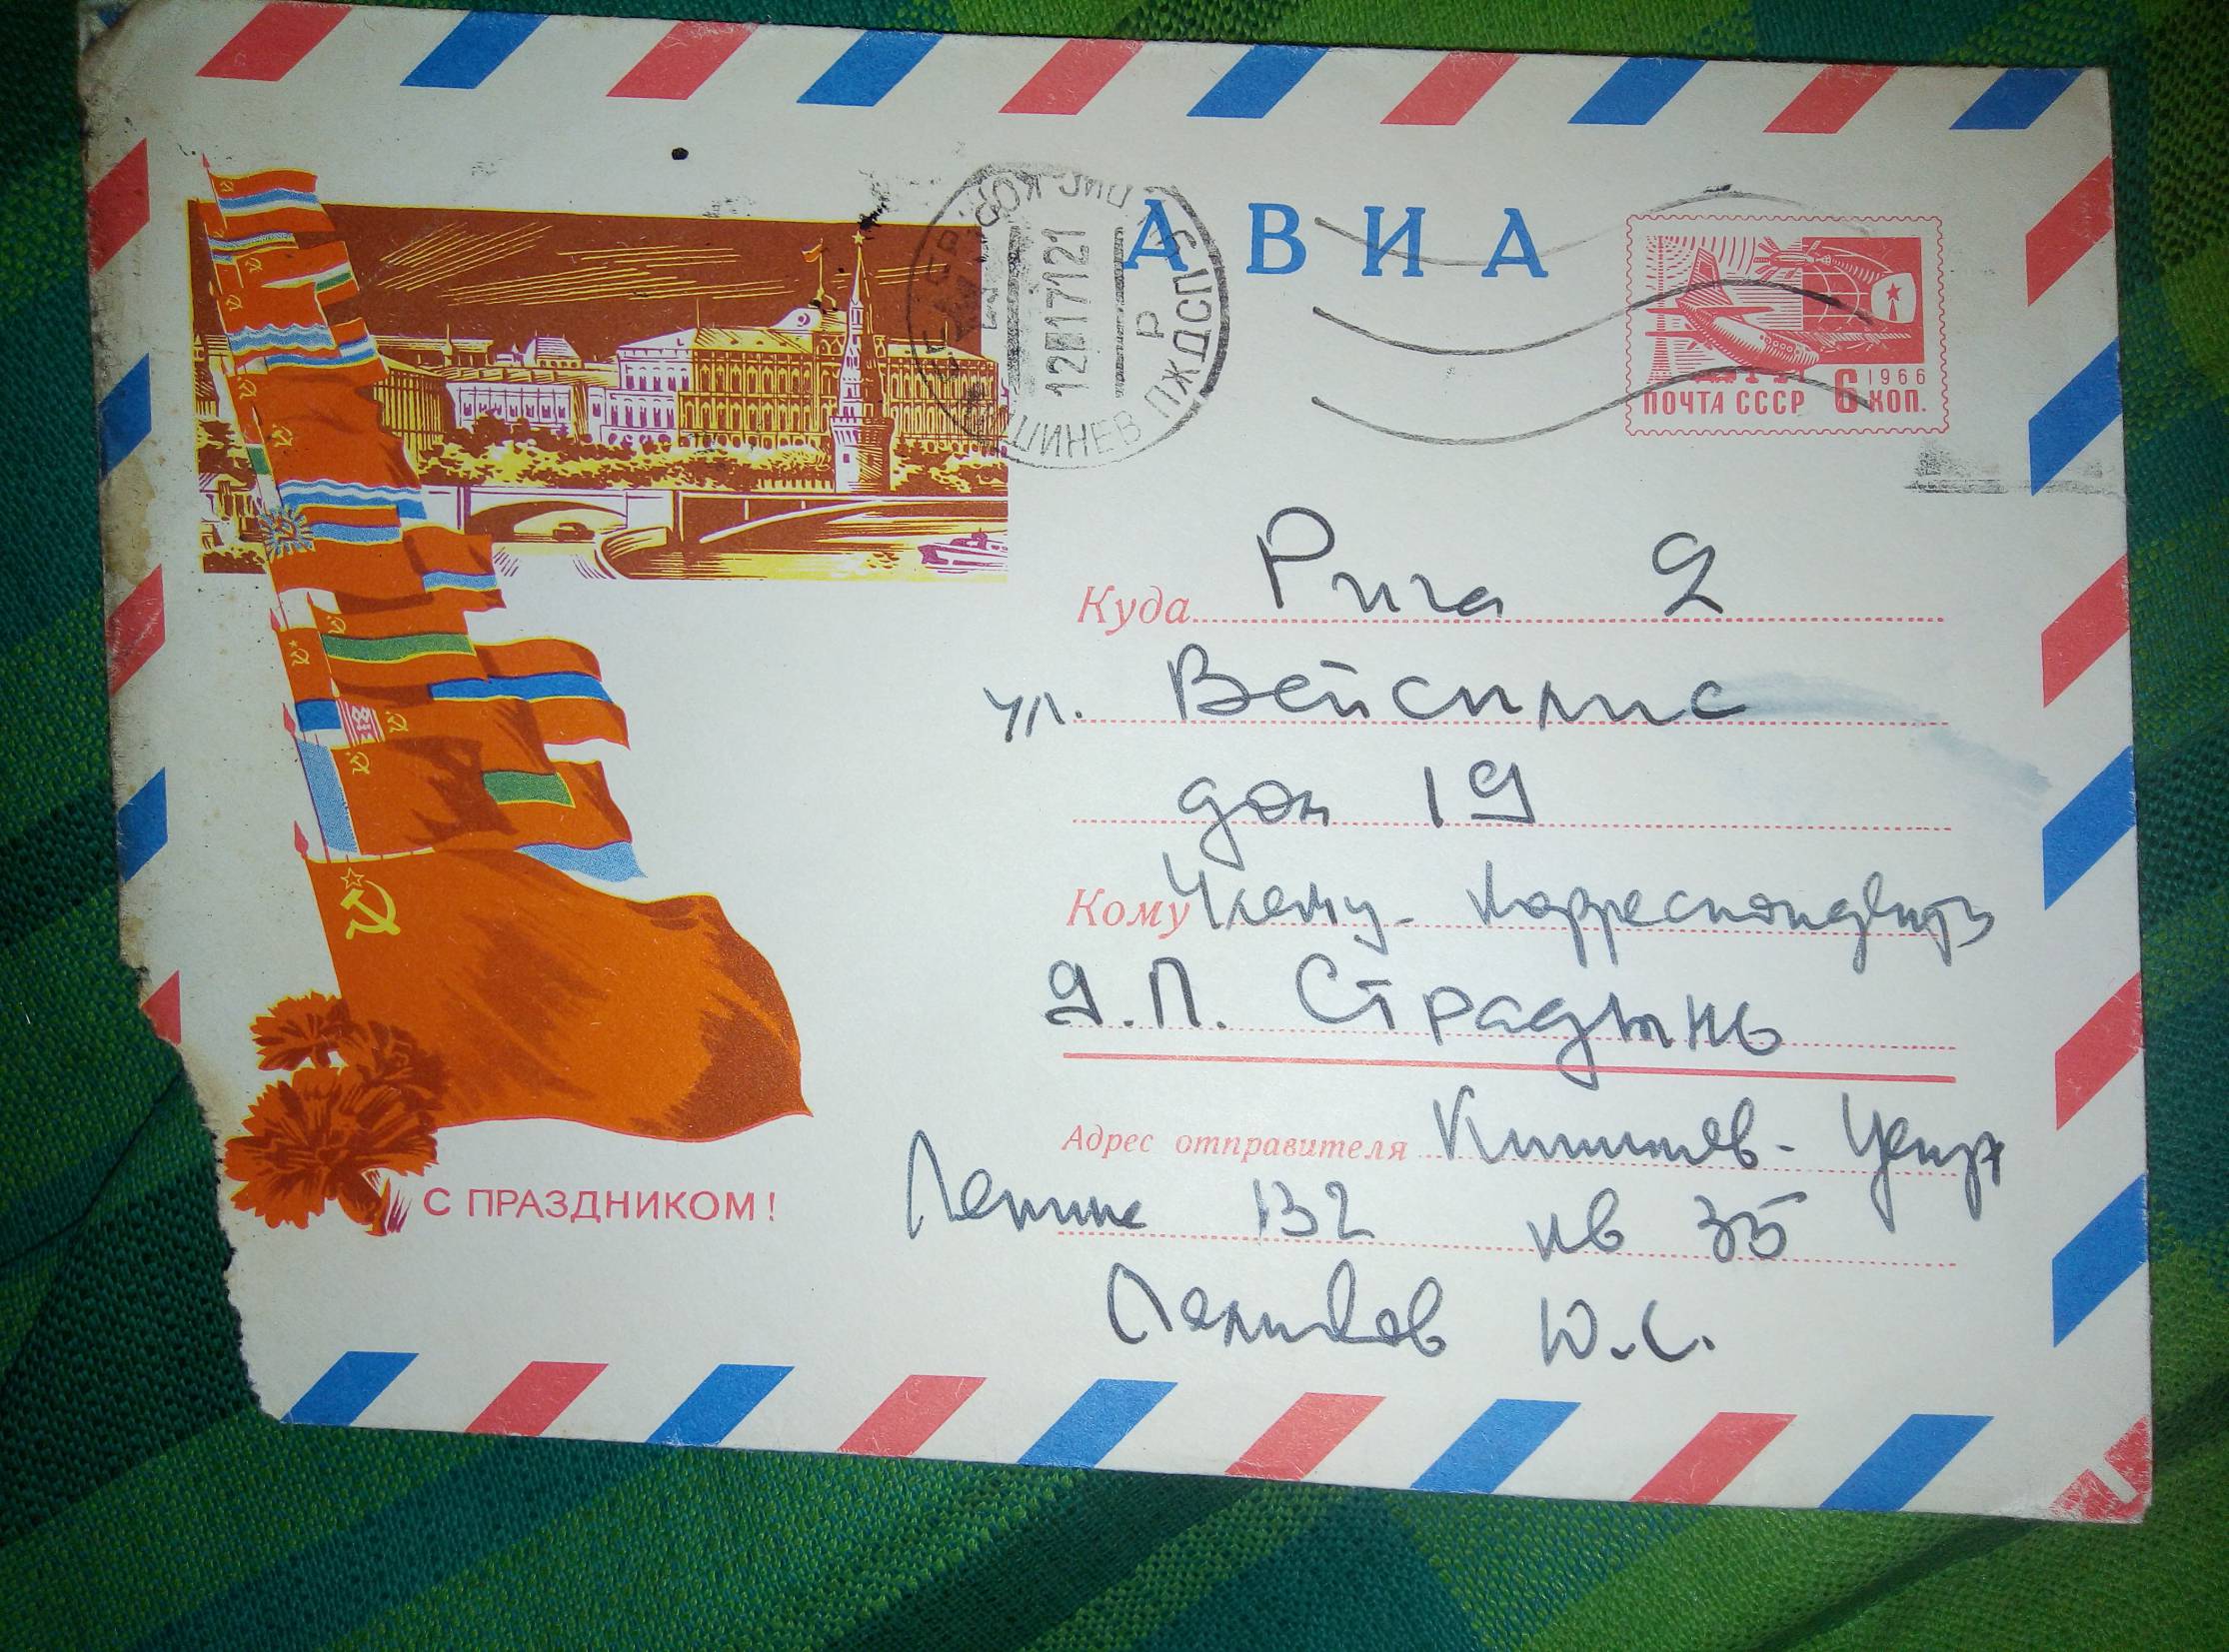 АВИА
12 17 21
Р
КИШИНЕВ ПЖДСП
1966
ПОЧТА СССР 6 КОП.
Куда Рига 2
ул. Вейсилис
дом 19
Кому Члену-корреспонденту
Я.П. Страдынь
Адрес отправителя Кишинев-Центр
Ленина 132 кв 35
Ю.С.
С ПРАЗДНИКОМ!